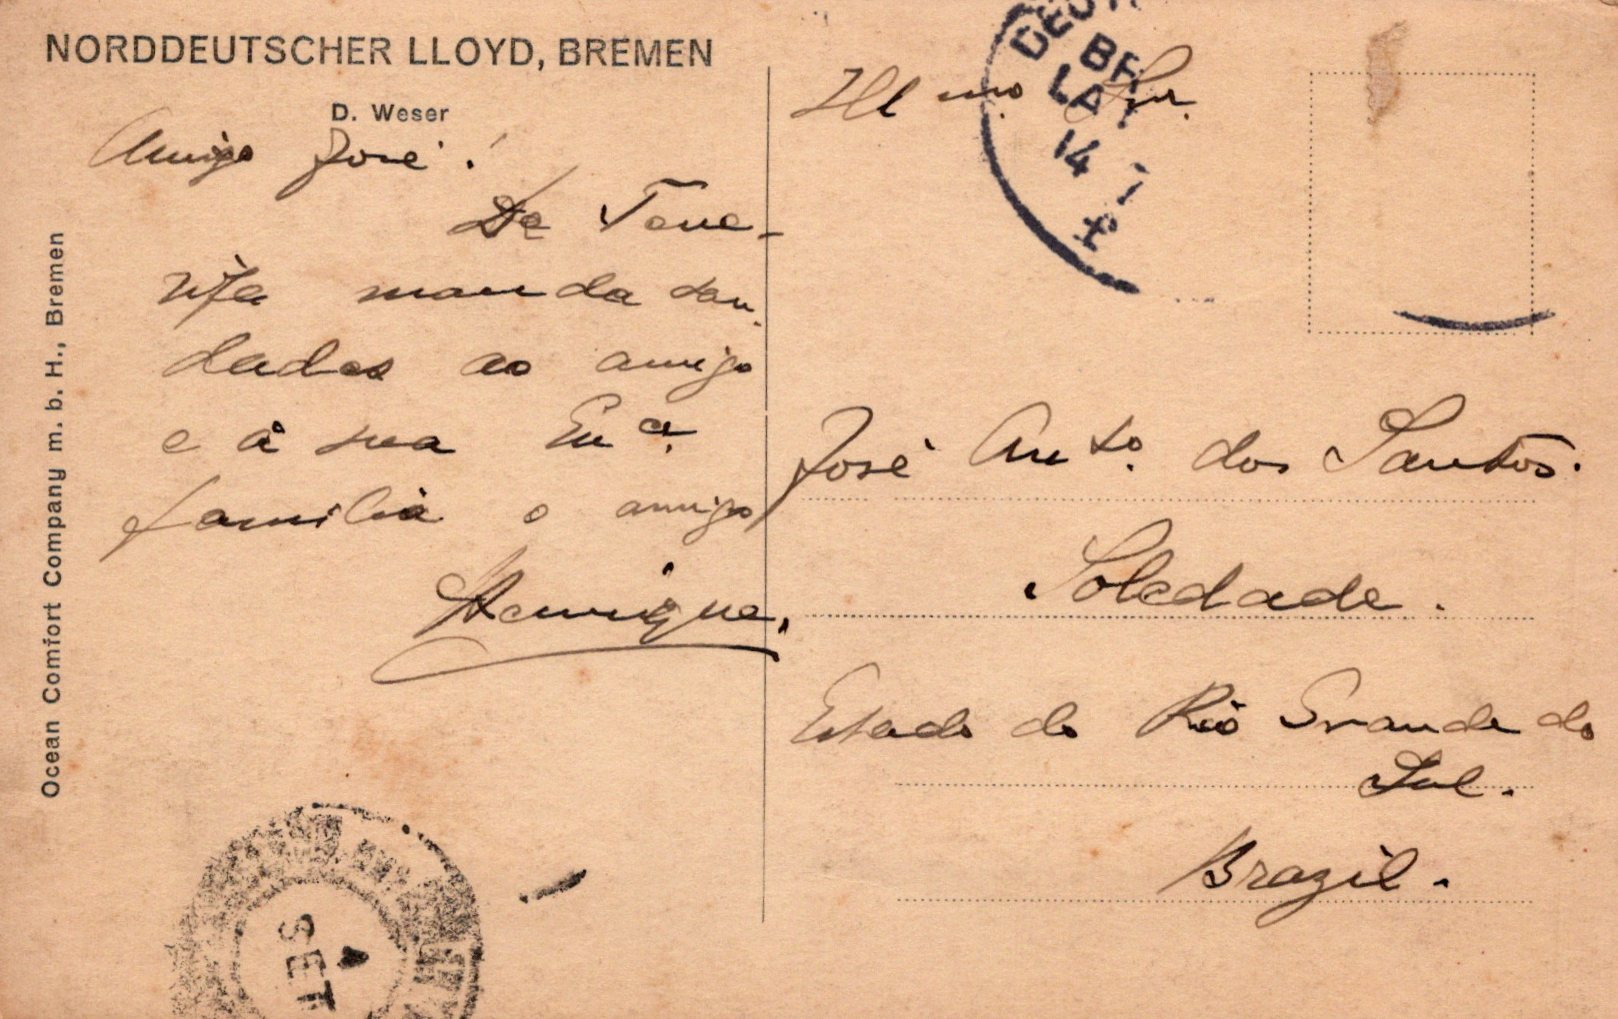 NORDDEUTSCHER LLOYD, BREMEN
D. Weser
Amigo José!
De Tene-
rife manda sau-
dades ao amigo
e á sua Exª.
familia o amigo
Henrique.
Ocean Comfort Company m. b. H., Bremen
Illmo. Snr.
José Anto. dos Santos.
Soledade.
Estado do Rio Grande do
Sul.
Brazil.
14 7
4
SET